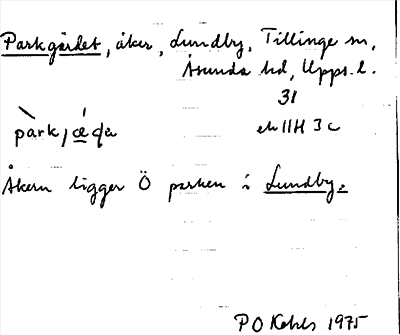 Parkgärdet, åker, Lundby, Tillinge sn,
Åsunda hd, Upps. l.
31
ek 11H 3c
park, æ da
Åkern ligger Ö parken i Lundby.
P O 1975